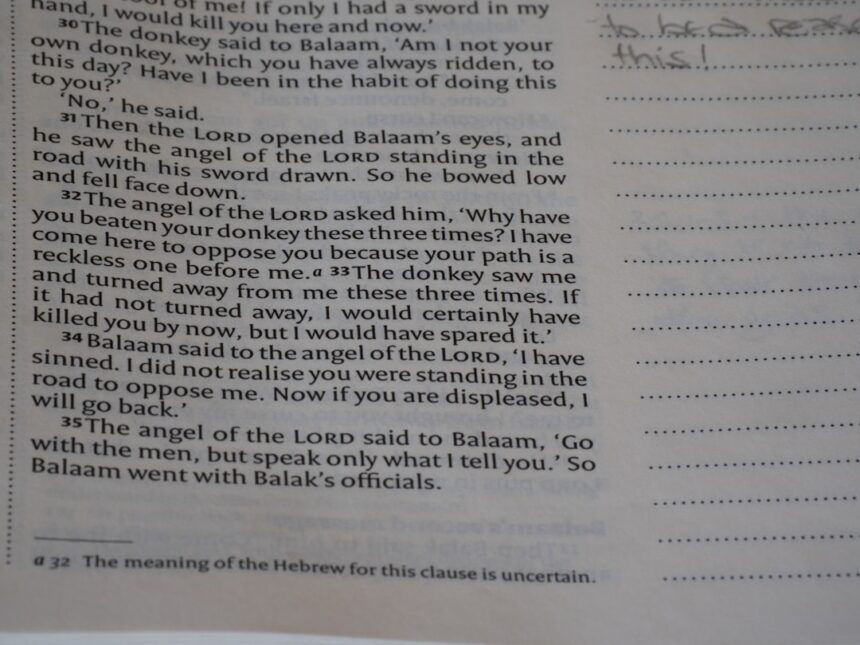 hand, I would kill you here and now.’
of me! If only I had a sword in my
30 The donkey said to Balaam, ‘Am I not your
own donkey, which you have always ridden, to
this day? Have I been in the habit of doing this
to you?’
‘No,’ he said.
31 Then the LORD opened Balaam’s eyes, and
he saw the angel of the LORD standing in the
road with his sword drawn. So he bowed low
and fell face down.
32 The angel of the LORD asked him, ‘Why have
you beaten your donkey these three times? I have
come here to oppose you because your path is a
reckless one before me.a 33 The donkey saw me
and turned away from me these three times. If
it had not turned away, I would certainly have
killed you by now, but I would have spared it.’
34 Balaam said to the angel of the LORD, ‘I have
sinned. I did not realise you were standing in the
road to oppose me. Now if you are displeased, I
will go back.’
35 The angel of the LORD said to Balaam, ‘Go
with the men, but speak only what I tell you.’ So
Balaam went with Balak’s officials.
a 32 The meaning of the Hebrew for this clause is uncertain.
to
this!